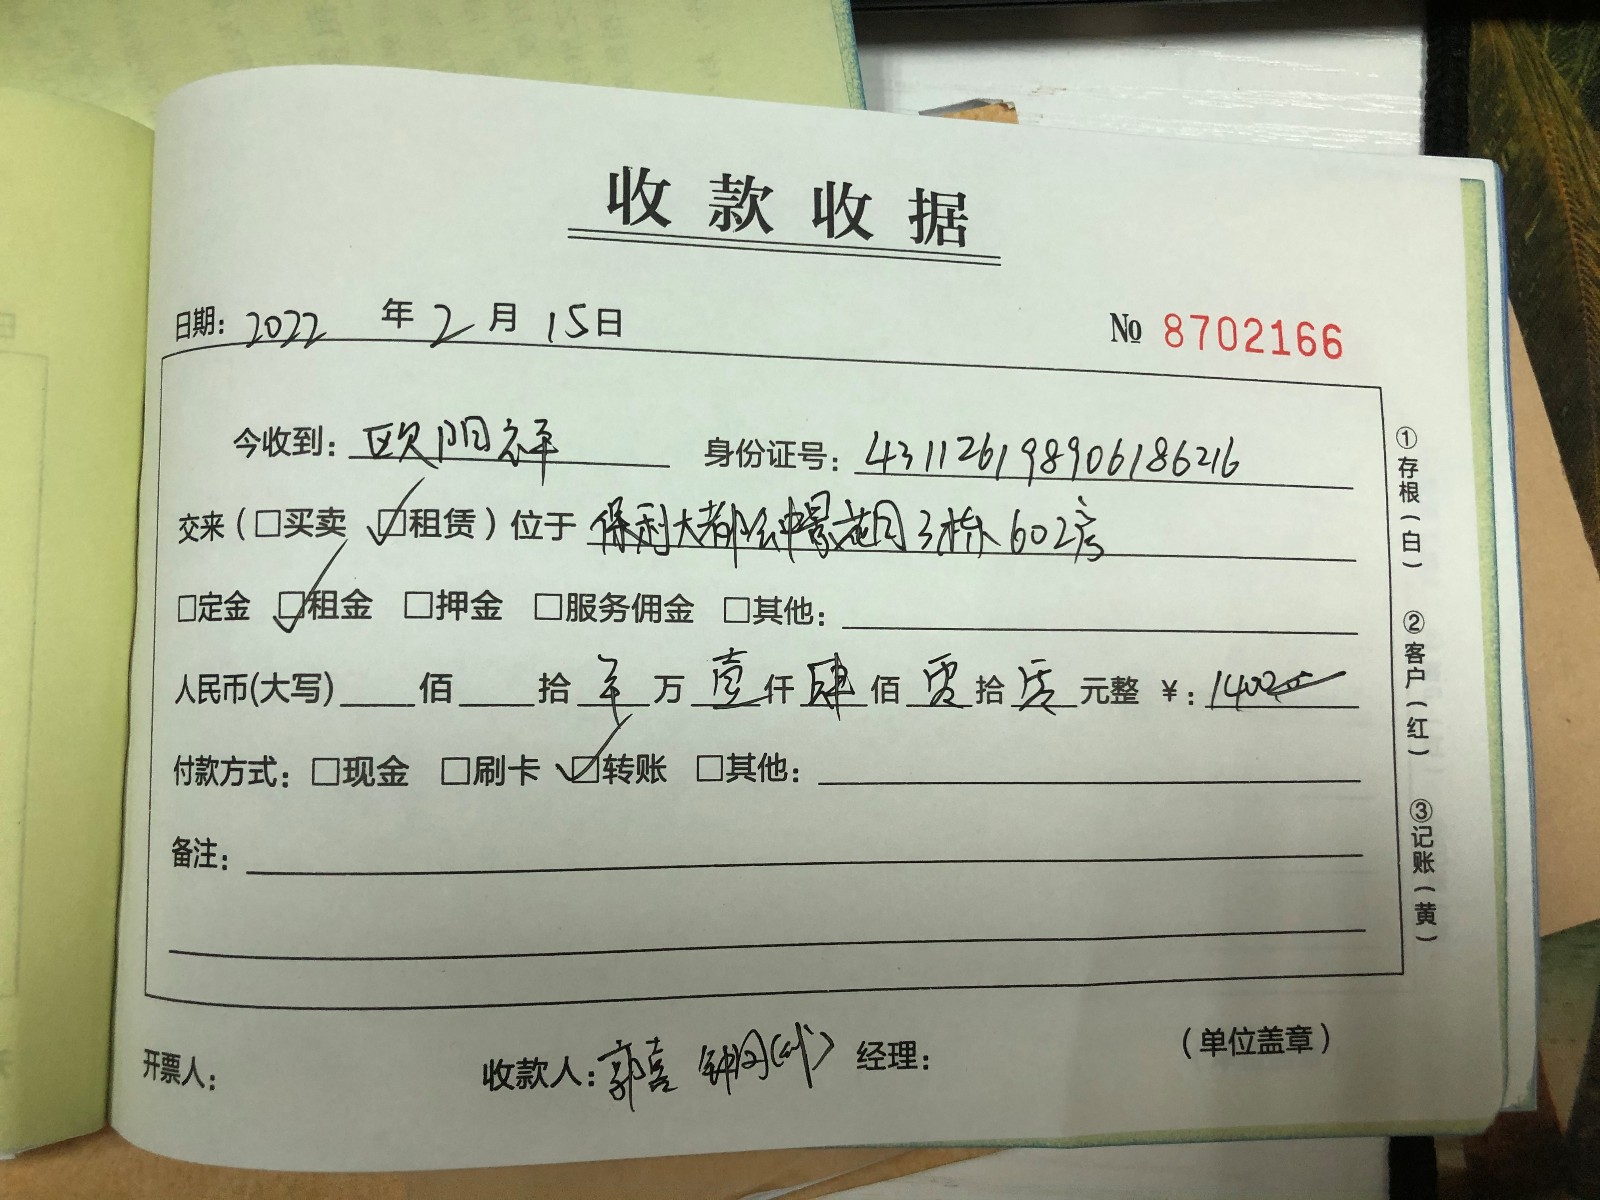 收款收据
日期：2022年2月15日 № 8702166
今收到：欧阳祥 身份证号：431126198906186216
交来（□买卖 ☑租赁）位于 保利大都汇 景花园3栋602房
□定金 ☑租金 □押金 □服务佣金 □其他：
人民币(大写) 佰 拾 万 壹仟 肆佰 零拾 零元整 ￥：1400
付款方式：□现金 □刷卡 ☑转账 □其他：
备注：
开票人： 收款人：郭喜 钟 (代) 经理： （单位盖章）
①存根（白） ②客户（红） ③记账（黄）